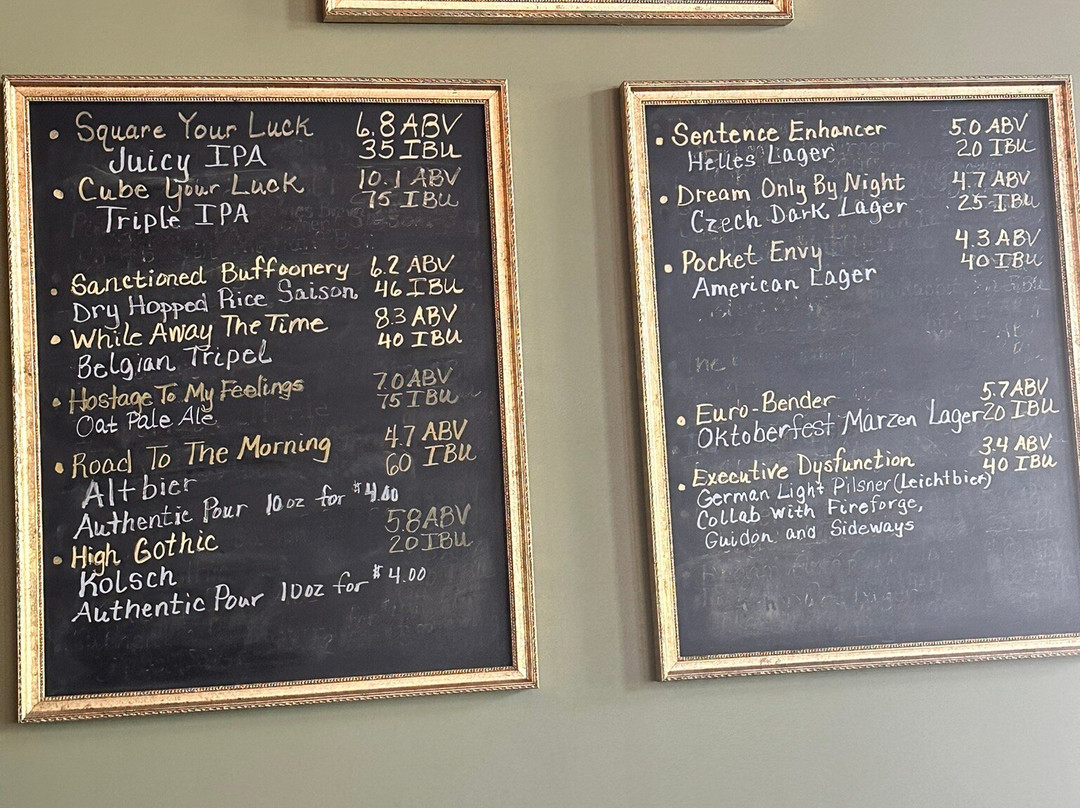 • Square Your Luck 6.8 ABV
Juicy IPA 35 IBU
• Cube Your Luck 10.1 ABV
Triple IPA 75 IBU
• Sanctioned Buffoonery 6.2 ABV
Dry Hopped Rice Saison 46 IBU
• While Away The Time 8.3 ABV
Belgian Tripel 40 IBU
• Hostage To My Feelings 7.0 ABV
Oat Pale Ale 75 IBU
• Road To The Morning 4.7 ABV
Altbier 60 IBU
Authentic Pour 10oz for $4.00
• High Gothic 5.8 ABV
Kolsch 20 IBU
Authentic Pour 10oz for $4.00
• Sentence Enhancer 5.0 ABV
Helles Lager 20 IBU
• Dream Only By Night 4.7 ABV
Czech Dark Lager 25 IBU
• Pocket Envy 4.3 ABV
American Lager 40 IBU
• Euro-Bender 5.7 ABV
Oktoberfest Marzen Lager 20 IBU
• Executive Dysfunction 3.4 ABV
German Light Pilsner (Leichtbier) 40 IBU
Collab with Fireforge,
Guidon and Sideways